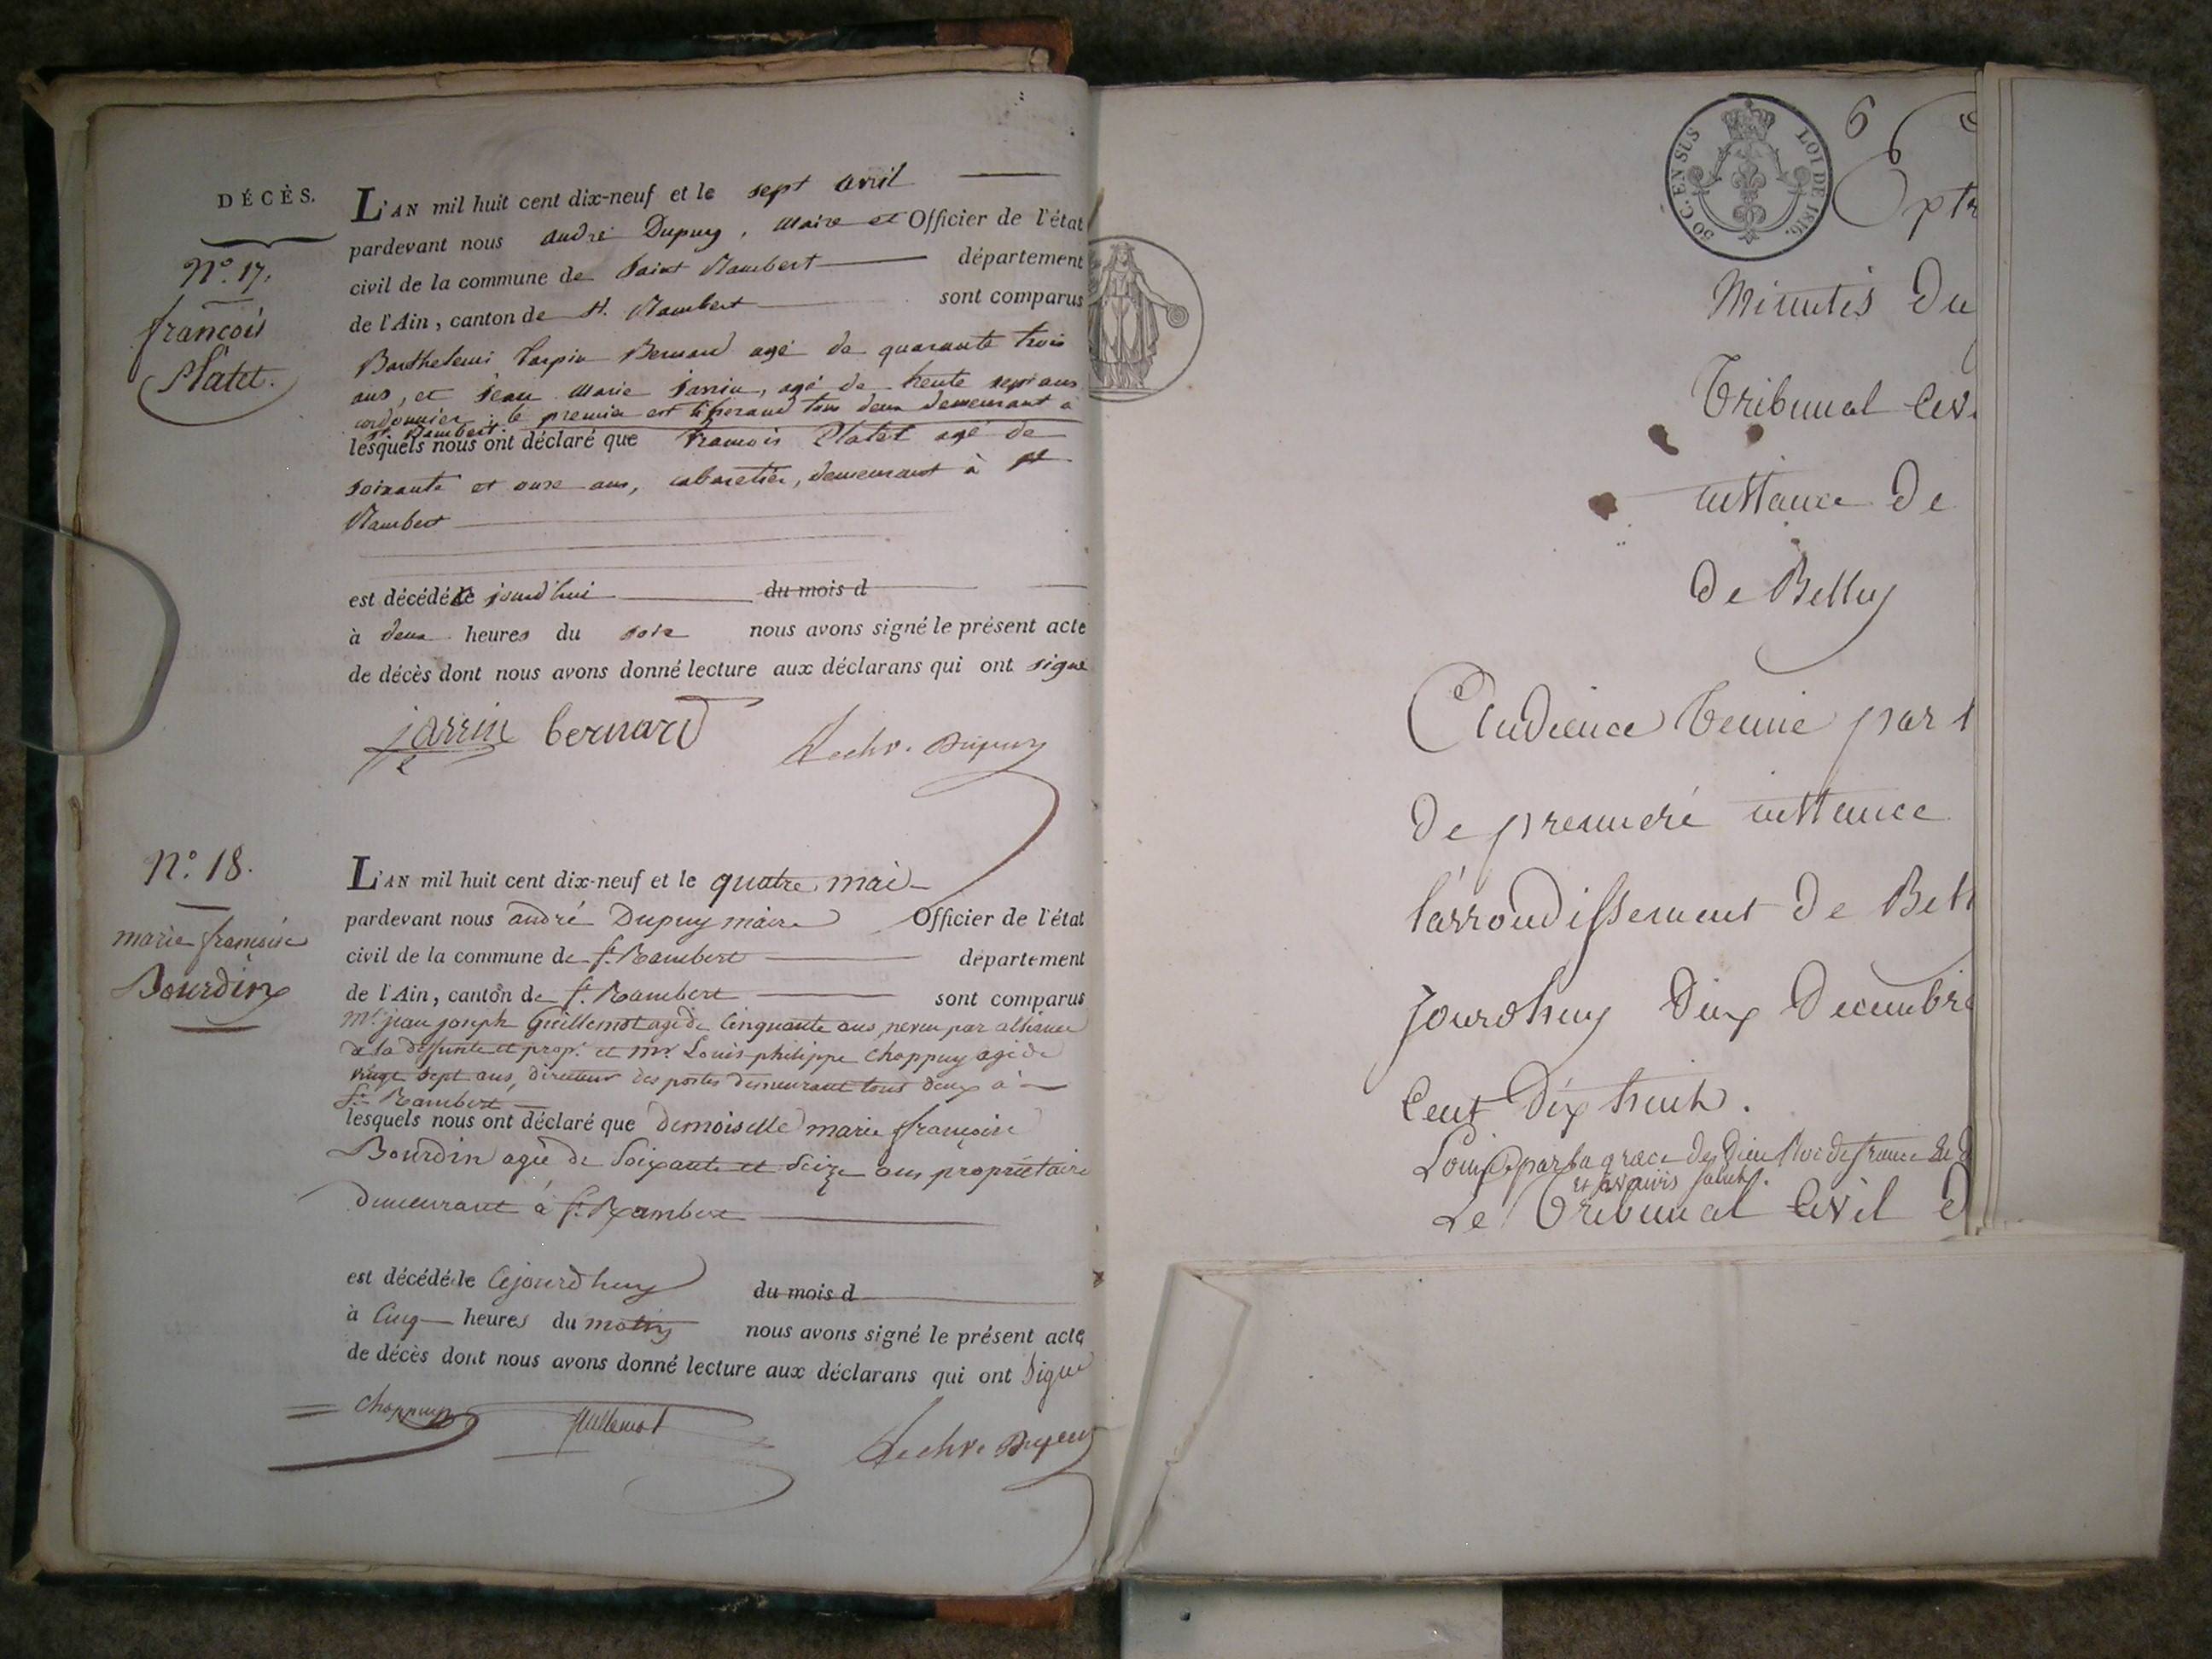 DÉCÈS.
N.º 17.
françois
Platet.
L'AN mil huit cent dix-neuf et le sept avril
pardevant nous andré Dupuy, Maire et Officier de l'état
civil de la commune de Saint Rambert département
de l'Ain, canton de St. Rambert sont comparus
Barthelemi Bernard agé de quarante trois
ans, et jean Marie , agé de trente sept ans
cordonnier, le premier est tisserand tous deux demeurant a
St. Rambert.
lesquels nous ont déclaré que francois Platet agé de
soixante et onze ans, cabaretier, demeurant à St
Rambert
est décédé ce jourd'hui du mois d
à deux heures du soir nous avons signé le présent acte
de décès dont nous avons donné lecture aux déclarans qui ont signé
jarrin bernard Dupuy
N.º 18.
marie françoise
Bourdin
L'AN mil huit cent dix-neuf et le quatre mai
pardevant nous andré Dupuy maire Officier de l'état
civil de la commune de St. Rambert département
de l'Ain, canton de St. Rambert sont comparus
Mr. jean joseph Guillemot agé de Cinquante ans, neveu par alliance
de la deffunte et prop.e et Mr. Louis philippe Choppuy agé de
vingt sept ans, directeur des postes demeurant tous deux à
St. Rambert
lesquels nous ont déclaré que demoiselle marie françoise
Bourdin agée de Soixante et Seize ans propriétaire
demeurant à St. Rambert
est décédé le Cejourd'huy du mois d
à Cinq heures du matin nous avons signé le présent acte
de décès dont nous avons donné lecture aux déclarans qui ont Signé
Choppuy Guillemot Dupuy
50 C. EN SUS LOI DE 1816.
6
Minutes Du
Tribunal Civ
instance De
De Belley
Audience tenue par l
De premiere instance
l'arrondissement De Bell
Jourdhuy Dix Decembre
Cent Dix huit.
Louis par la grace de Dieu Roi de france
Et avenir Salut.
Le Tribunal Civil d